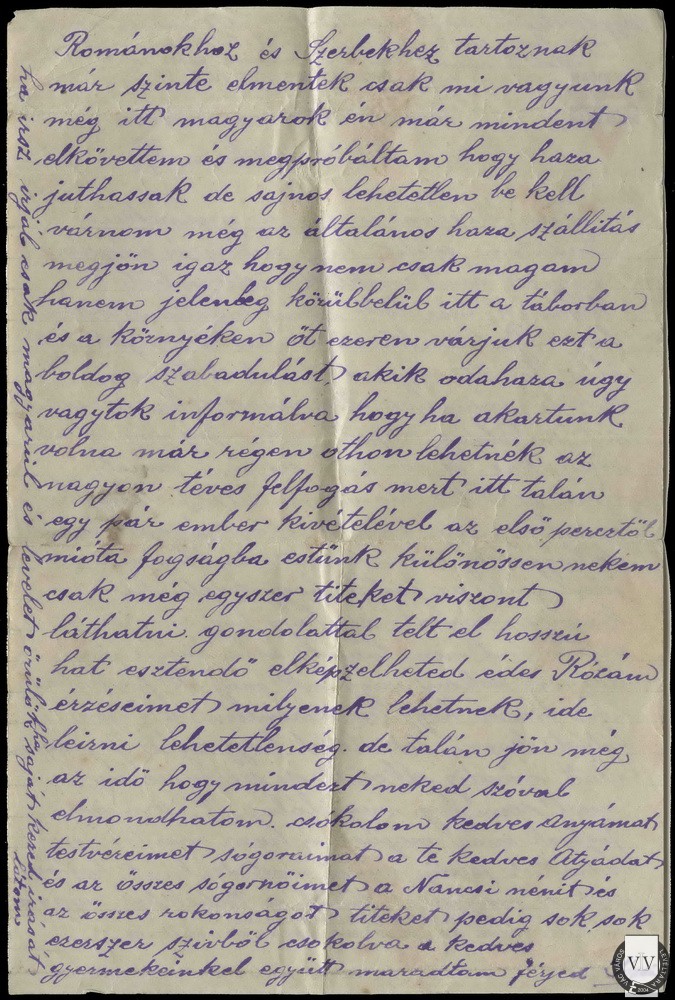 Románokhoz és Szerbekhez tartoznak
már szinte elmentek csak mi vagyunk
még itt magyarok én már mindent
elkövettem és megpróbáltam hogy haza
juthassak de sajnos lehetetlen be kell
várnom még az általános haza szállitás
megjön igaz hogy nem csak magam
hanem jelenleg körülbelül itt a táborban
és a környéken öt ezeren várjuk ezt a
boldog szabadulást, akik odahaza úgy
vagytok informálva hogy ha akartunk
volna már régen othon lehetnék az
nagyon téves felfogás mert itt talán
egy pár ember kivételével az első percztől
mióta fogságba estünk különössen nekem
csak még egyszer titeket viszont
láthatni. gondolattal telt el hosszú
hat esztendő elképzelheted édes Rózám
érzéseimet milyenek lehetnek, ide
leirni lehetetlenség. de talán jön még
az idő hogy mindezt neked szóval
elmondhatom. csókolom kedves anyámat
testvéreimet sógoraimat a te kedves Atyádat
és az összes sógornőimet a Nancsi nénit és
az összes rokonságot titeket pedig sok sok
ezerszer szivből csokolva a kedves
gyermekeinkel együtt maradtam férjed
ha irsz irjál csak magyarúl és levelet örülök ha saját kezed irását
látom
VÁC VÁROS LEVÉLTÁRA
VVL
2004